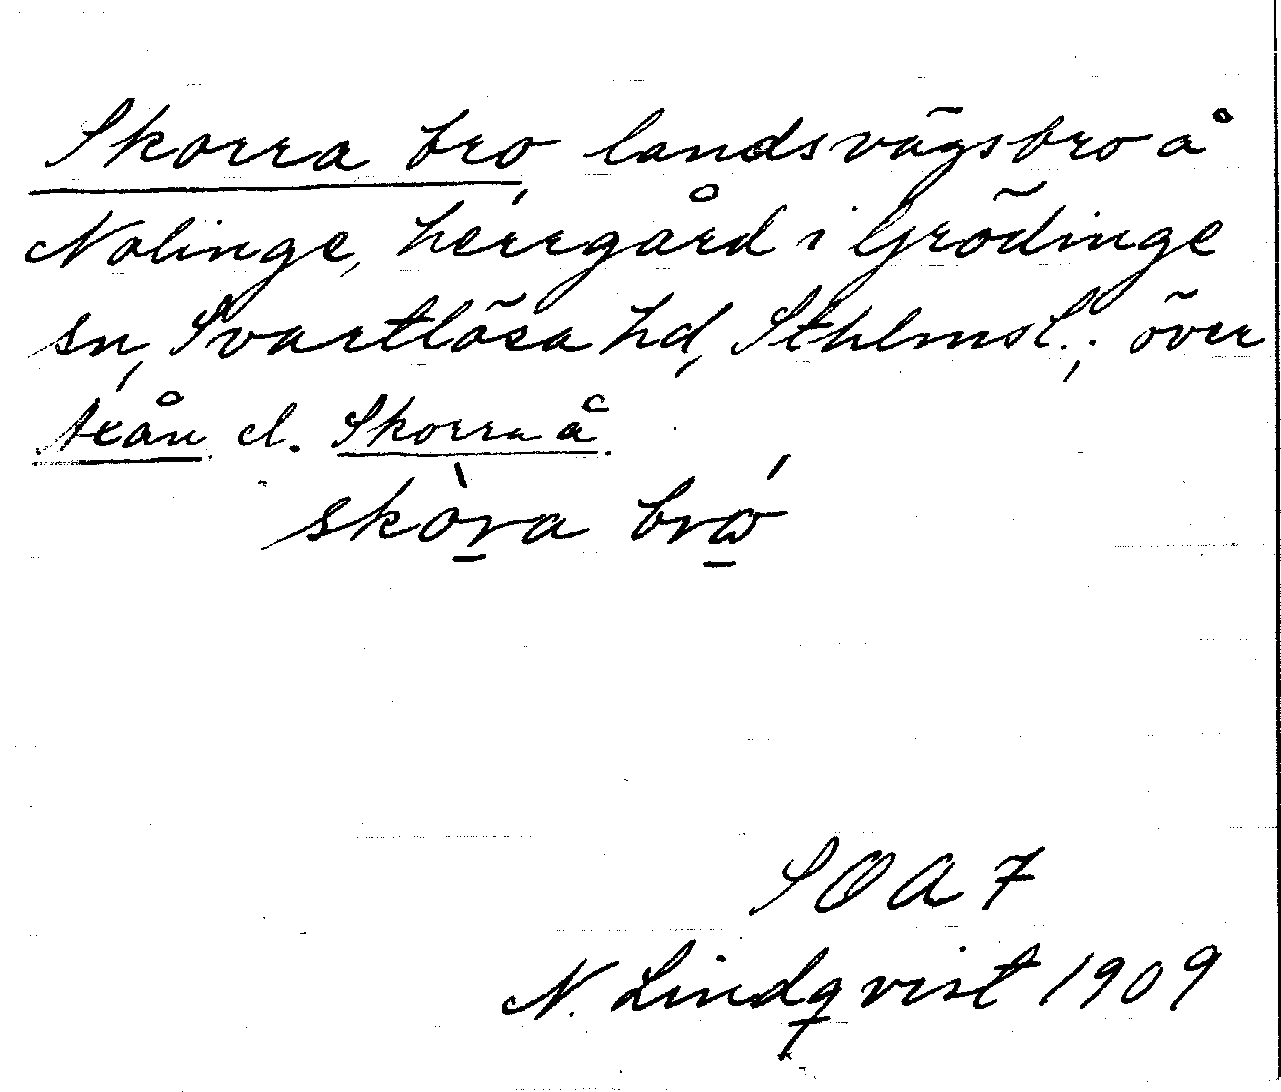 Skorra bro landsvägsbro å
Nolinge, herrgård i Grödinge
sn, Svartlösa hd, Sthlmsl.; över
Axån el. Skorra å.
skòra bró
SOA 7
N. Lindqvist 1909